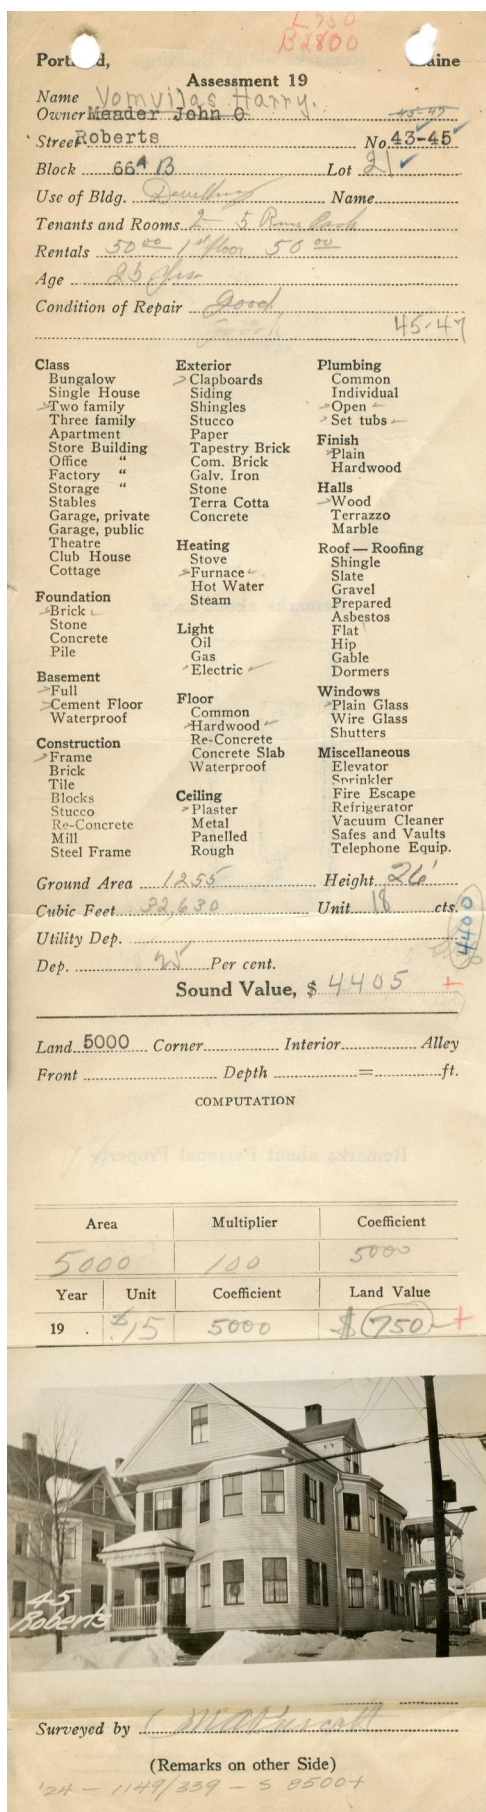 L 750
B 2800
Portland, Maine
Assessment 19
Name Vomvilas Harry.
Owner Meader John O 45-47
Street Roberts No. 43-45
Block 66A B Lot 21
Use of Bldg. Dwelling Name
Tenants and Rooms 2 - 5 Rms Each
Rentals 50 00 1st floor 50 00
Age 25 yrs
Condition of Repair Good
45-47
Class
Bungalow
Single House
Two family
Three family
Apartment
Store Building
Office "
Factory "
Storage "
Stables
Garage, private
Garage, public
Theatre
Club House
Cottage
Foundation
Brick
Stone
Concrete
Pile
Basement
Full
Cement Floor
Waterproof
Construction
Frame
Brick
Tile
Blocks
Stucco
Re-Concrete
Mill
Steel Frame
Exterior
Clapboards
Siding
Shingles
Stucco
Paper
Tapestry Brick
Com. Brick
Galv. Iron
Stone
Terra Cotta
Concrete
Heating
Stove
Furnace
Hot Water
Steam
Light
Oil
Gas
Electric
Floor
Common
Hardwood
Re-Concrete
Concrete Slab
Waterproof
Ceiling
Plaster
Metal
Panelled
Rough
Plumbing
Common
Individual
Open
Set tubs
Finish
Plain
Hardwood
Halls
Wood
Terrazzo
Marble
Roof — Roofing
Shingle
Slate
Gravel
Prepared
Asbestos
Flat
Hip
Gable
Dormers
Windows
Plain Glass
Wire Glass
Shutters
Miscellaneous
Elevator
Sprinkler
Fire Escape
Refrigerator
Vacuum Cleaner
Safes and Vaults
Telephone Equip.
Ground Area 1255 Height 26'
Cubic Feet 32,630 Unit 18 cts.
Utility Dep.
4400
Dep. 25 Per cent.
Sound Value, $ 4405 +
Land 5000 Corner Interior Alley
Front Depth = ft.
COMPUTATION
Area Multiplier Coefficient
5000 100 5000
Year Unit Coefficient Land Value
19 . $15 5000 $ 750 +
45
Roberts
Surveyed by
(Remarks on other Side)
'24 - 1149/339 - S 8500+